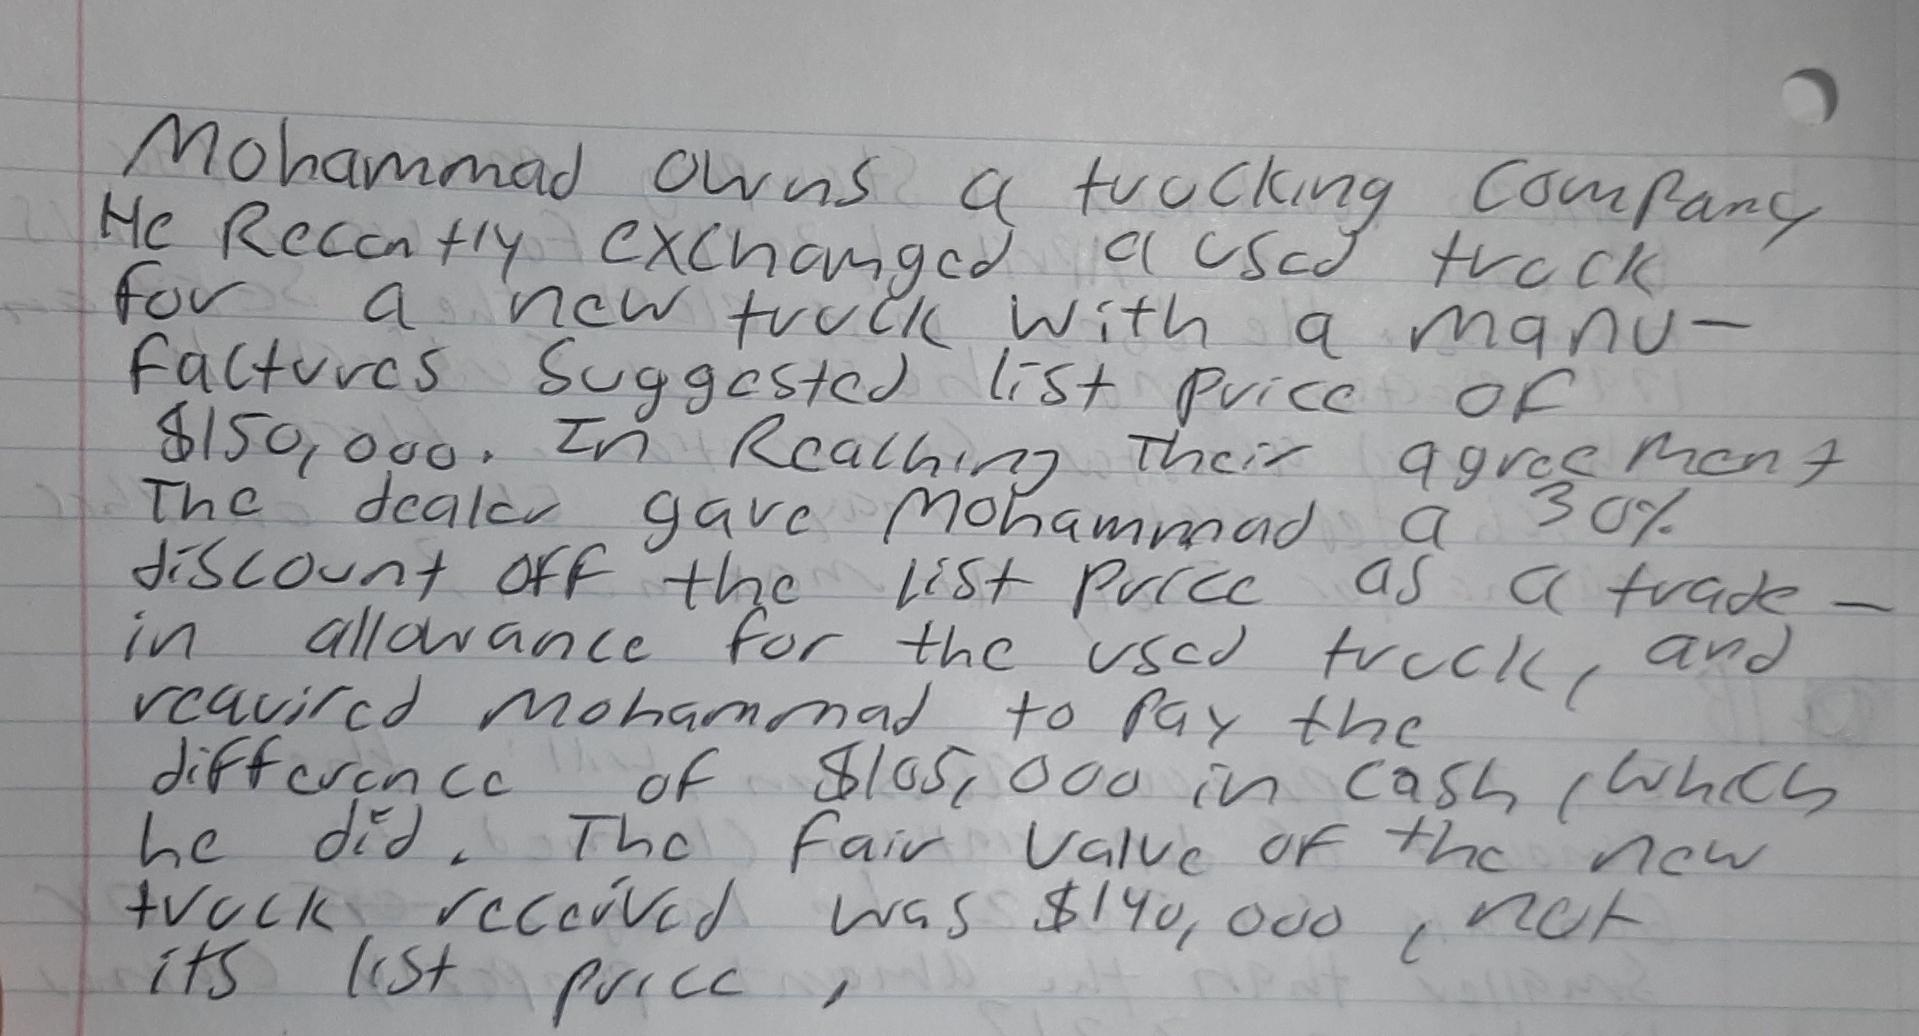 Mohammad owns a trucking company
He Recently exchanged a used truck
for a new truck with a manu-
factures suggested list price of
$150,000. In Reaching Their agreement
The dealer gave Mohammad a 30%
discount off the list price as a trade-
in allowance for the used truck, and
required Mohammad to pay the
difference of $105,000 in cash, which
he did. The fair value of the new
truck received was $140,000, not
its list price,